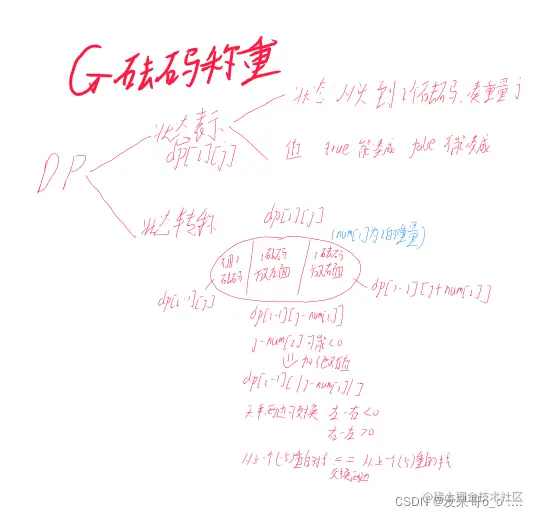 G 砝码称重
状态 从1到i个砝码,凑重量j
状态表示
dp[i][j]
值 true 能凑成 false 不能凑成
DP
状态转移
dp[i][j]
(num[i]为i的重量)
不用i砝码 i砝码放左面 i砝码放右面
dp[i-1][j] dp[i-1][j+num[i]]
dp[i-1][j-num[i]]
j-num[i]可能<0
加绝对值
dp[i-1][|j-num[i]|]
天平两边可交换 左-右<0
右-左>0
从上一个(-5)重的 == 从上一个(5)重的
交换两边
@稀土掘金技术社区
CSDN @发呆哥o_o ....